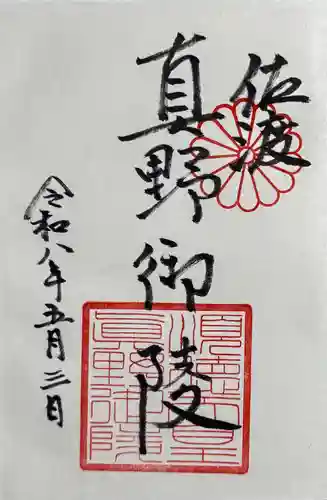 佐渡
真野御陵
令和八年五月三日